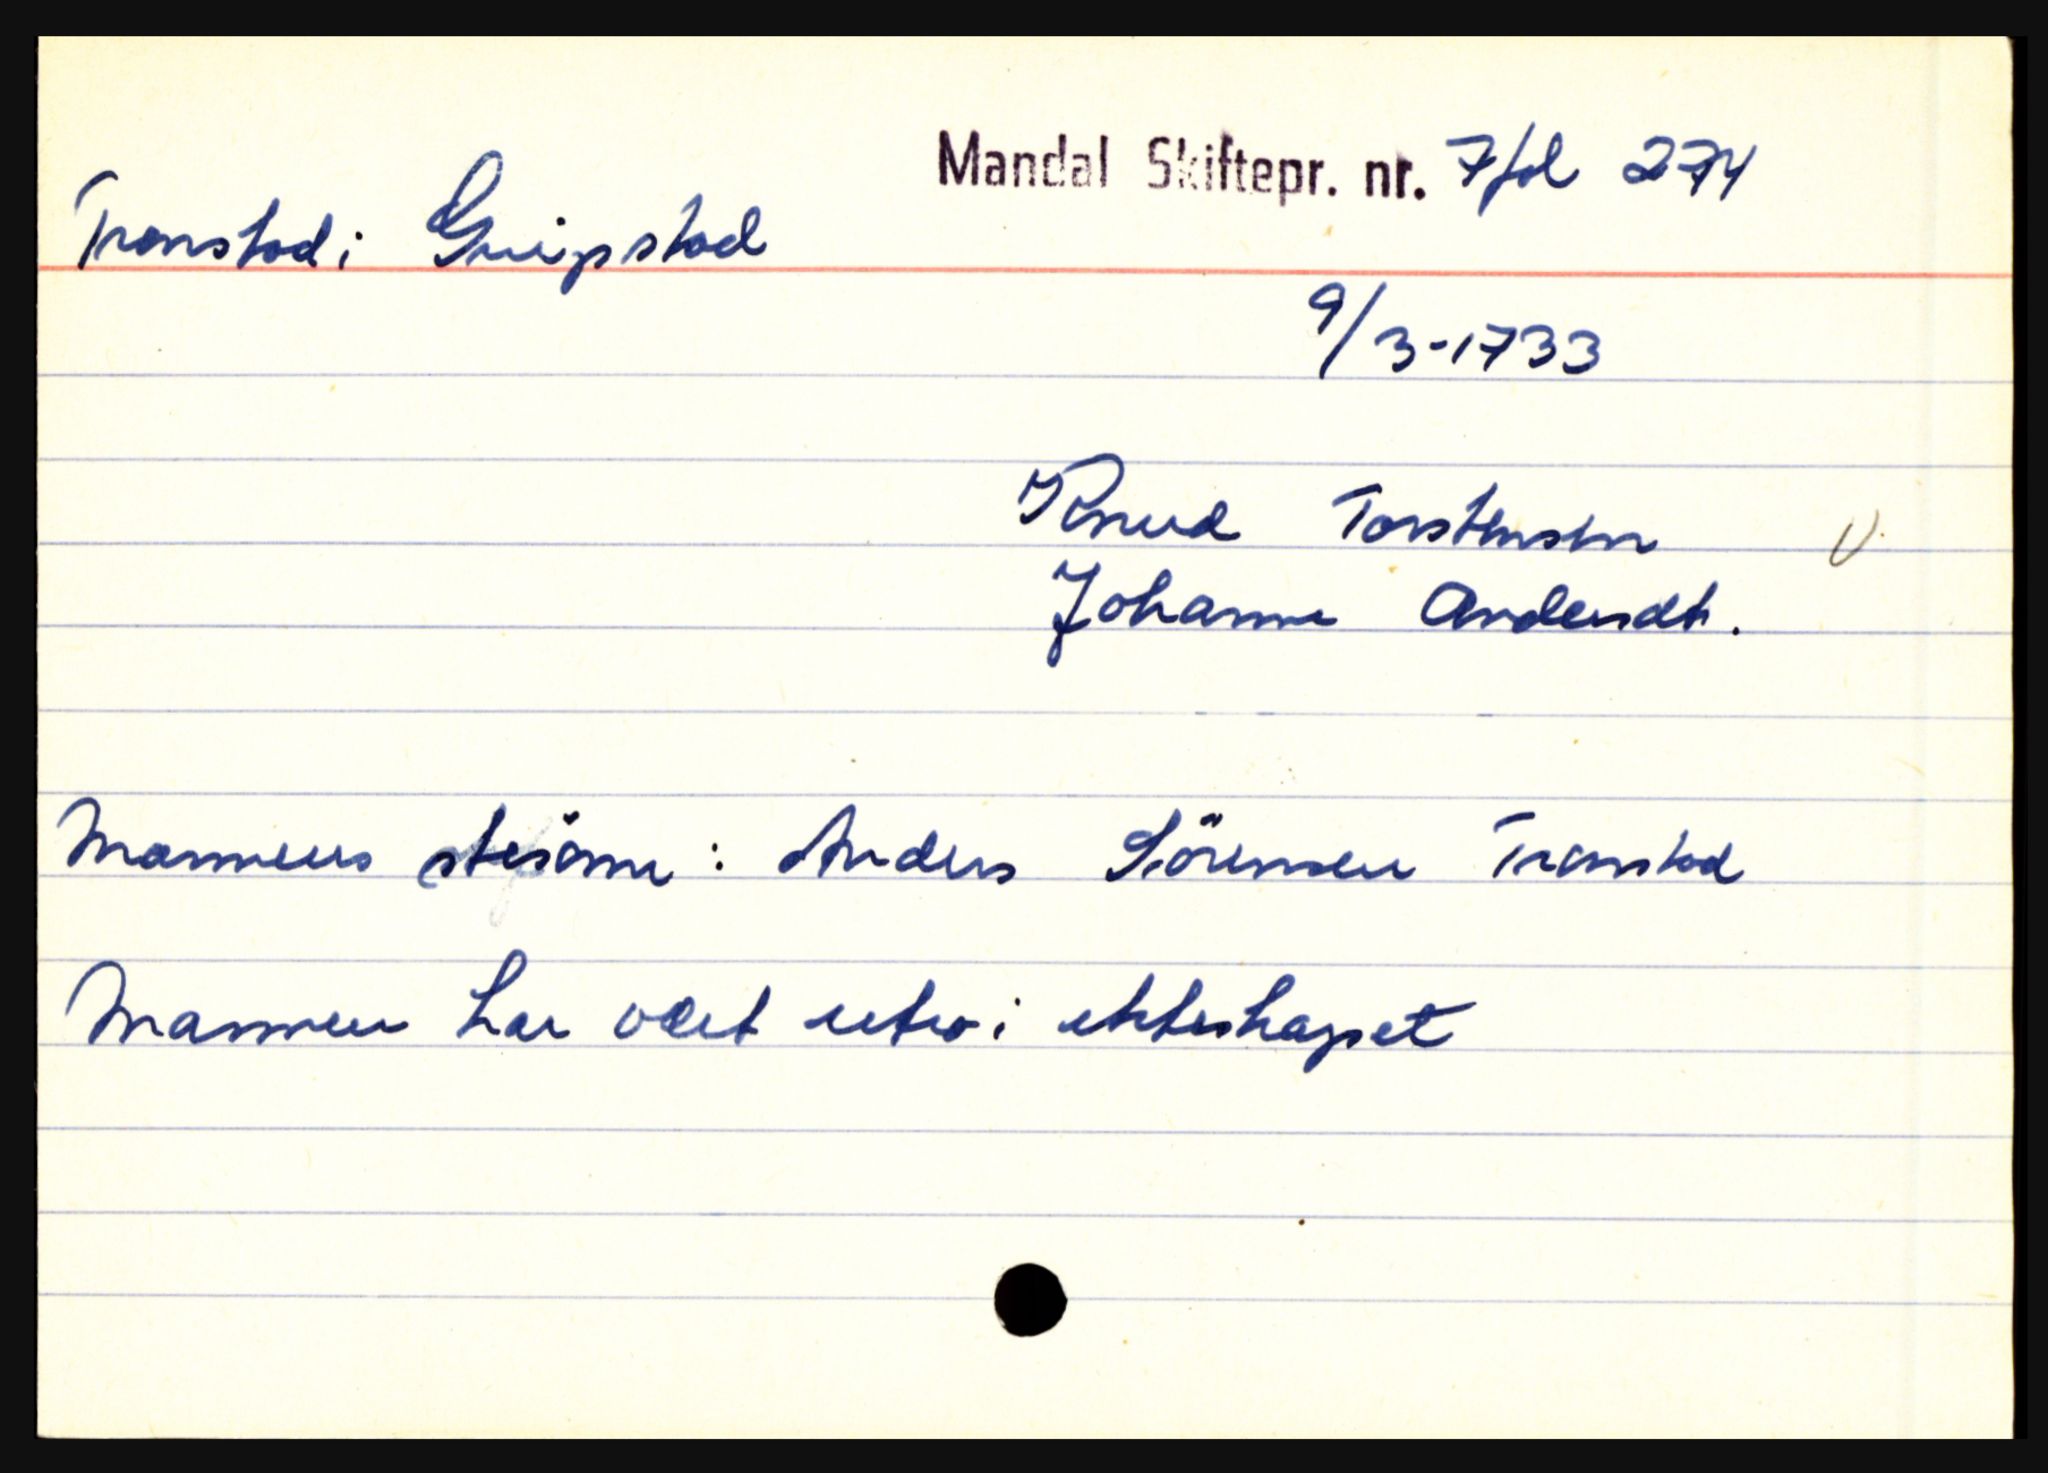 Mandal Skiftepr. nr. 7 fol 274
Tronstad i Greipstad
9/3-1733
Knud Torstensen V
Johanne Andersdt.
Mannens stesönn : Anders Sörensen Tronstad
Mannen har vært utro i ekteskapet